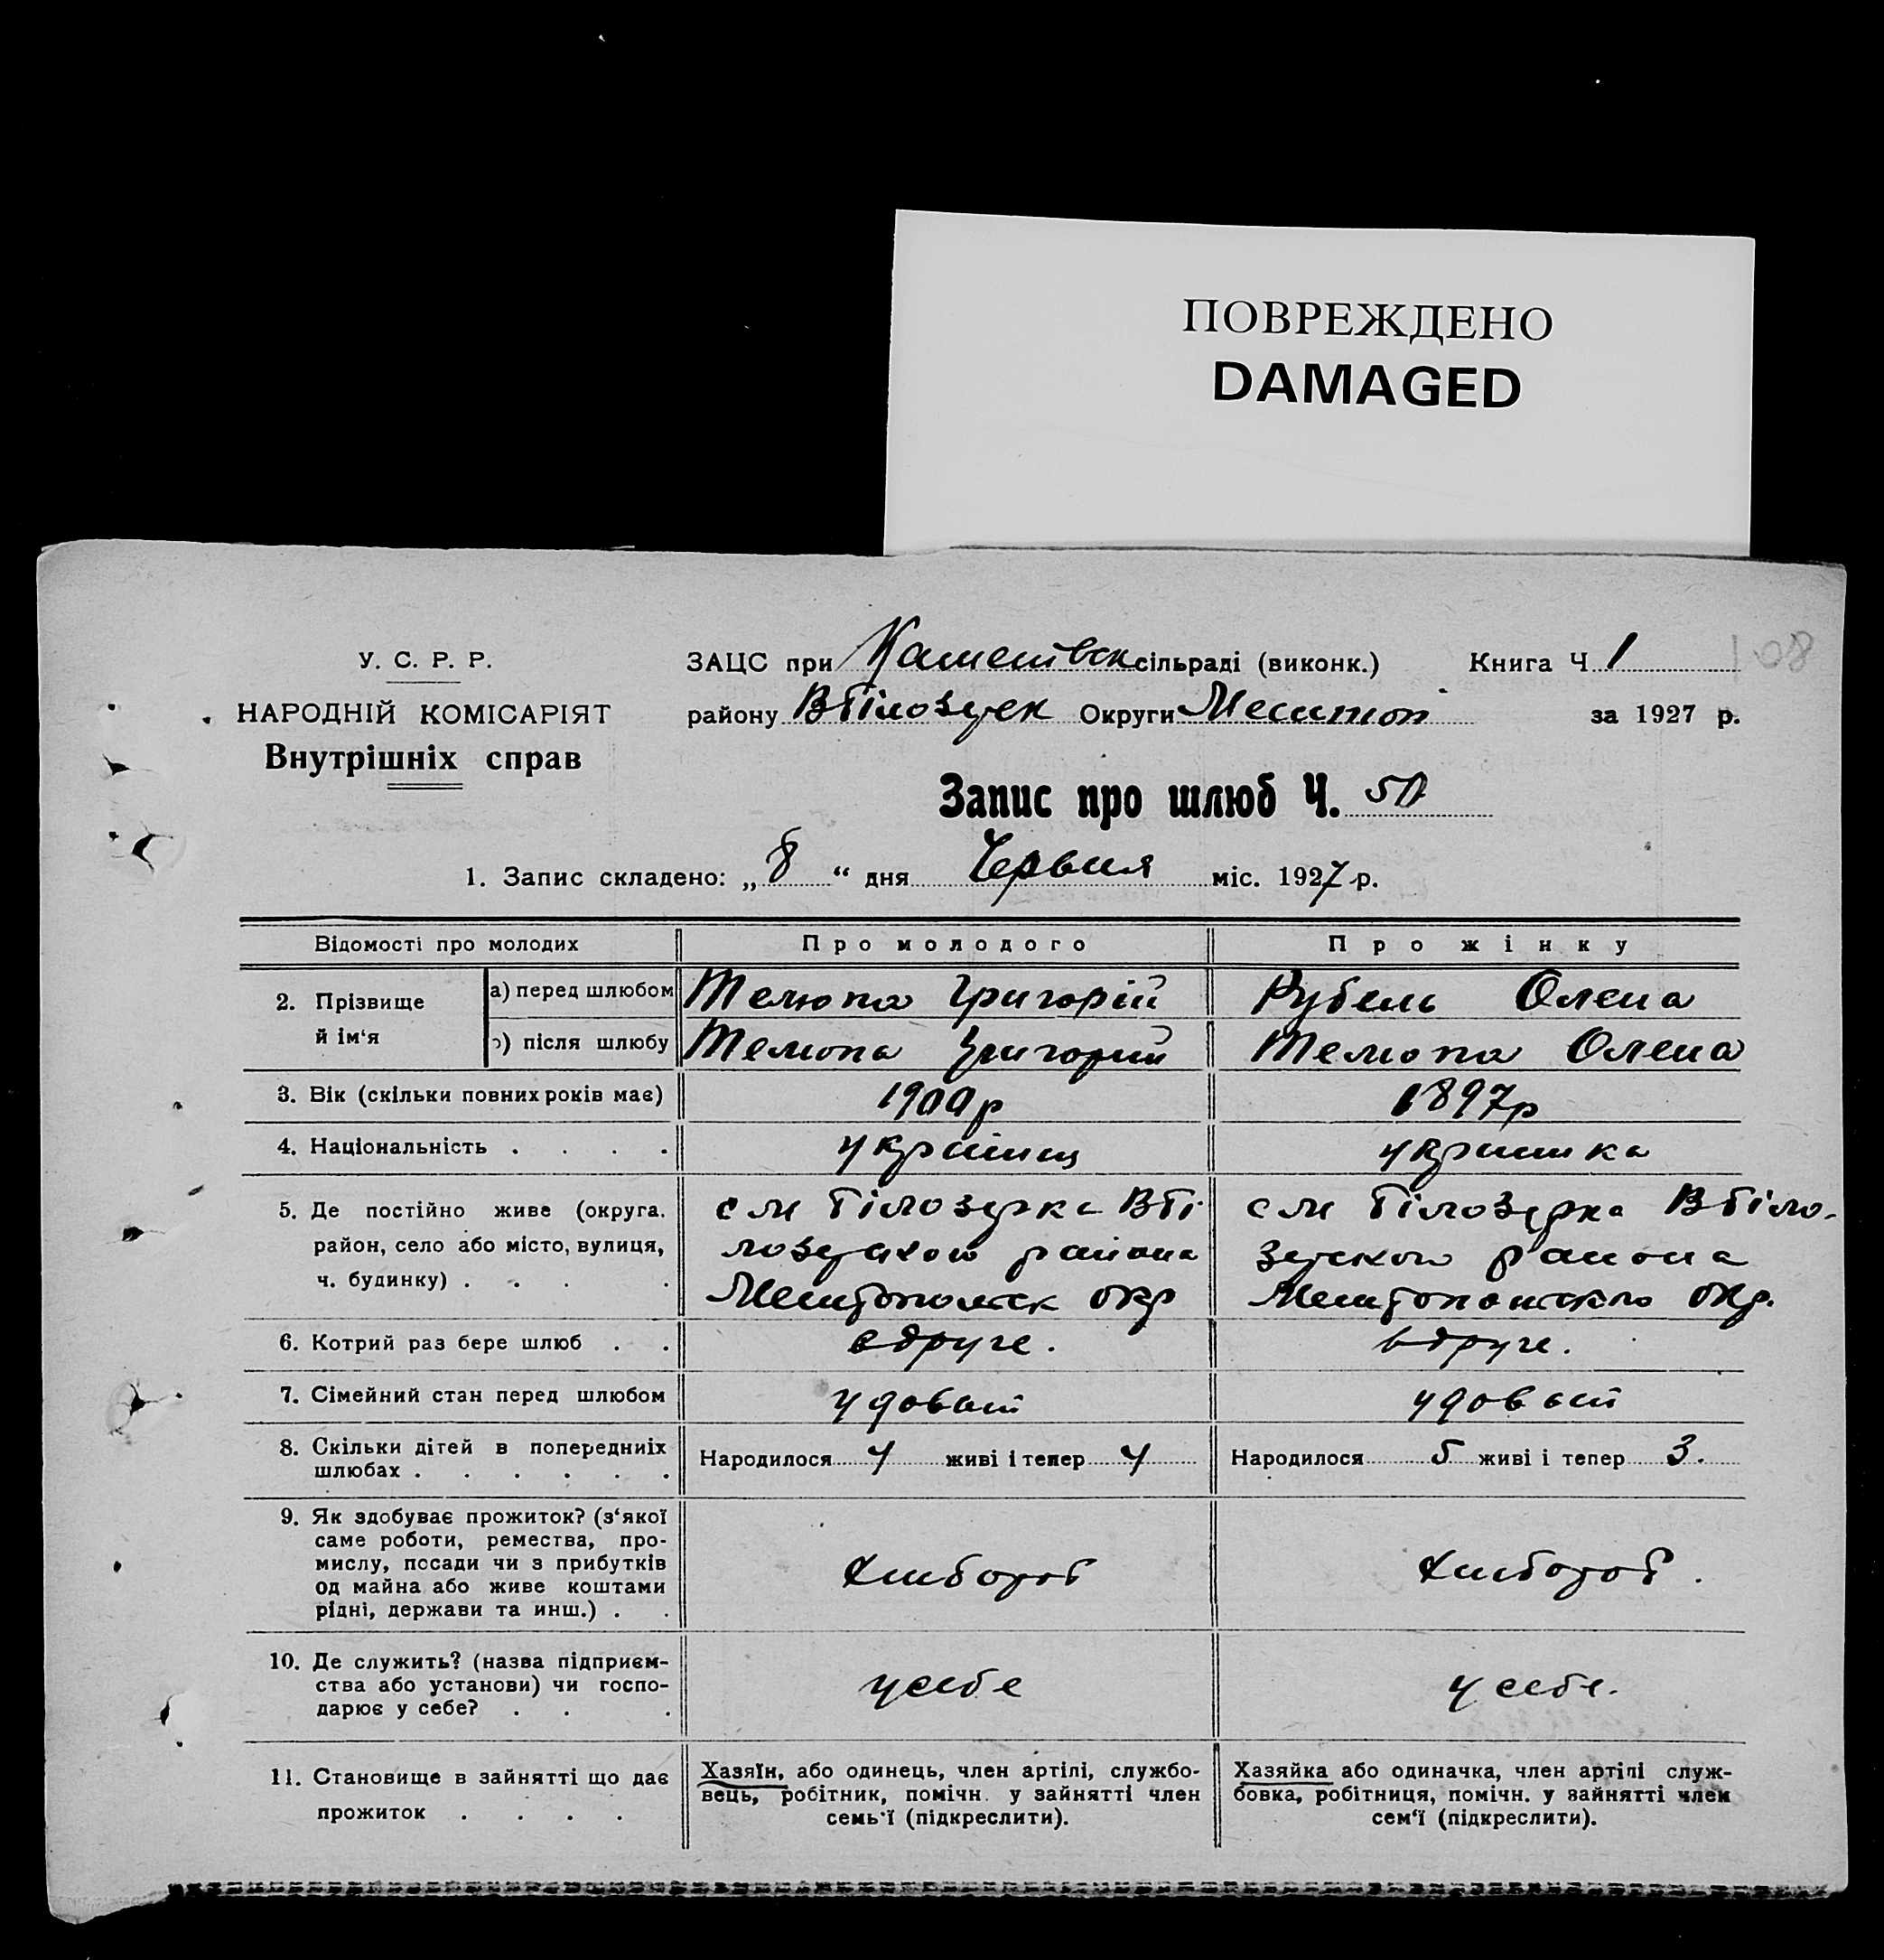 ПОВРЕЖДЕНО
DAMAGED
У. С. Р. Р.
НАРОДНІЙ КОМІСАРІЯТ
Внутрішніх справ
ЗАЦС при сільраді (виконк.) Книга Ч. 1 108
району ВБілозерк Округи Мелитоп за 1927 р.
Запис про шлюб Ч. 50
1. Запис складено: „ 8 “ дня Червня міс. 1927 р.
Відомості про молодих Про молодого Про жінку
2. Прізвище й ім‘я
а) перед шлюбом Телюпа Григорій Рубель Олена
б) після шлюбу Телюпа Григорий Телюпа Олена
3. Вік (скільки повних років має) 1900р 1897р
4. Національність . . . . українец українка
5. Де постійно живе (округа, район, село або місто, вулиця, ч. будинку) . . . .
с М Білозерка ВБі
лозерского района
Мелитопольск окр
с М Білозерка ВБіло-
зерского района
Мелитопольского окр.
6. Котрий раз бере шлюб . . вдруге. вдруге.
7. Сімейний стан перед шлюбом удовий удовий
8. Скільки дітей в попередниіх шлюбах . . . . . .
Народилося 4 живі і тепер 4
Народилося 5 живі і тепер 3.
9. Як здобуває прожиток? (з‘якої
саме роботи, ремества, про-
мислу, посади чи з прибутків
од майна або живе коштами
рідні, держави та инш.) . .
хлібороб
хлібороб.
10. Де служить? (назва підприєм-
ства або установи) чи госпо-
дарює у себе? . . .
у себе
у себе.
11. Становище в зайнятті що дає
прожиток . . . .
Хазяїн, або одинець, член артілі, службо-
вець, робітник, помічн. у зайнятті член
семь‘ї (підкреслити).
Хазяйка або одиначка, член артілі служ-
бовка, робітниця, помічн. у зайнятті член
сем‘ї (підкреслити).